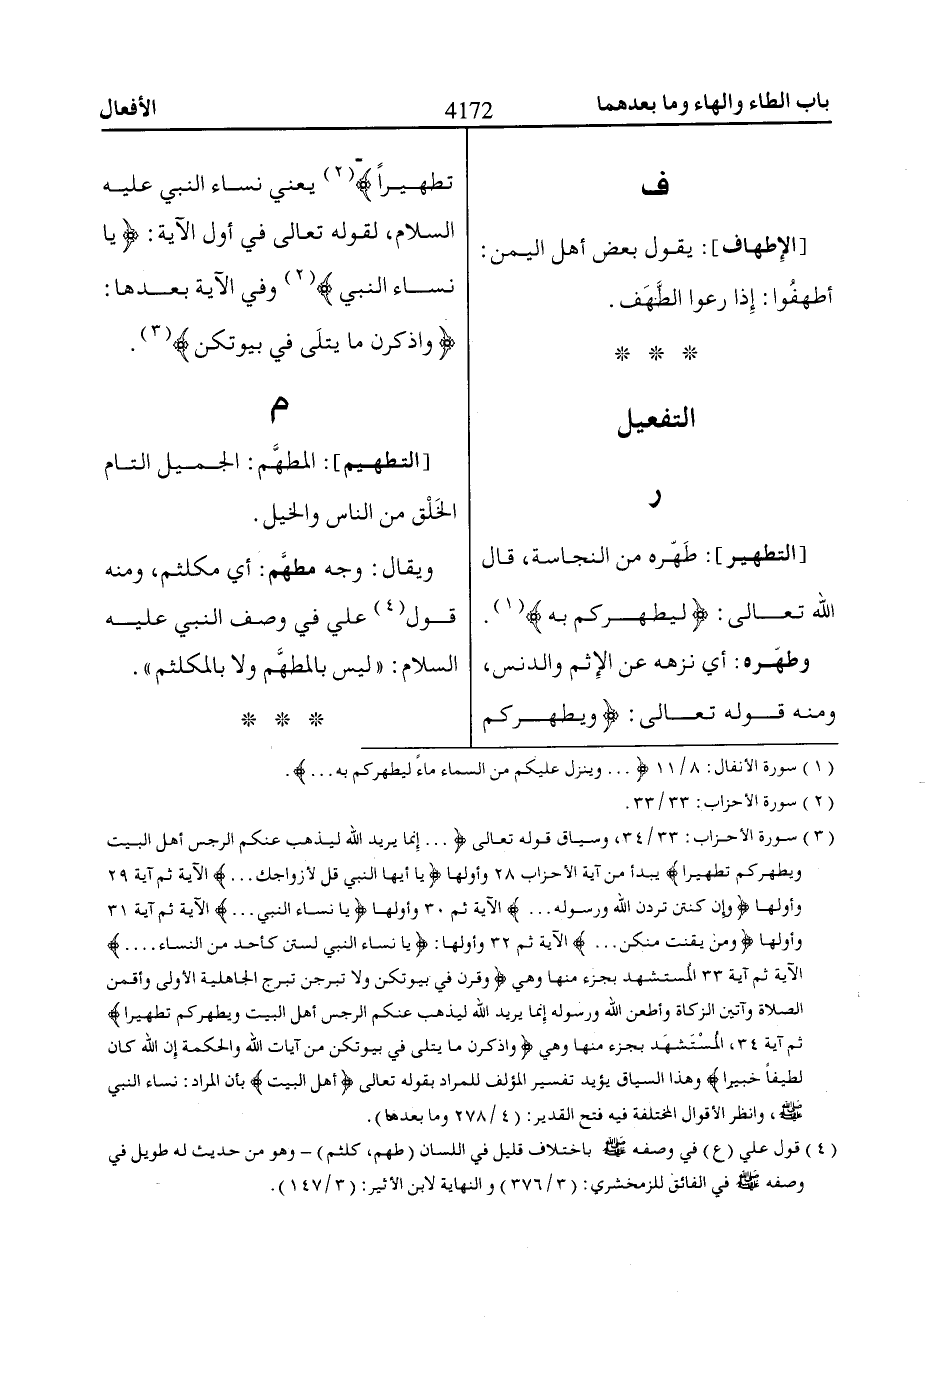 باب الطاء والهاء وما بعدهما
4172
الأفعال
ف
[الإطهاف]: يقول بعض أهل اليمن:
أطهفُوا: إذا رعوا الطَّهَف.
* * *
التفعيل
ر
[التطهير]: طَهّره من النجاسة، قال
الله تعالى: ﴿ليطهركم به﴾(١).
وطهّره: أي نزهه عن الإثم والدنس،
ومنه قوله تعالى: ﴿ويطهركم
تطهيراً﴾(٢) يعني نساء النبي عليه
السلام، لقوله تعالى في أول الآية: ﴿يا
نساء النبي﴾(٢) وفي الآية بعدها:
﴿واذكرن ما يتلَى في بيوتكن﴾(٣).
م
[التطهيم]: المطهَّم: الجميل التام
الخَلْق من الناس والخيل.
ويقال: وجه مطهَّم: أي مكلثم، ومنه
قول(٤) علي في وصف النبي عليه
السلام: «ليس بالمطهَّم ولا بالمكلثم».
* * *
(١) سورة الأنفال: ١١/٨ ﴿... وينزل عليكم من السماء ماءً ليطهركم به...﴾.
(٢) سورة الأحزاب: ٣٣/٣٣.
(٣) سورة الأحزاب: ٣٤/٣٣، وسياق قوله تعالى ﴿... إنما يريد الله ليذهب عنكم الرجس أهل البيت
ويطهركم تطهيرا﴾ يبدأ من آية الأحزاب ٢٨ وأولها ﴿يا أيها النبي قل لأزواجك...﴾ الآية ثم آية ٢٩
وأولها ﴿وإن كنتن تردن الله ورسوله...﴾ الآية ثم ٣٠ وأولها ﴿يا نساء النبي...﴾ الآية ثم آية ٣١
وأولها ﴿ومن يقنت منكن...﴾ الآية ثم ٣٢ وأولها: ﴿يا نساء النبي لستن كأحد من النساء....﴾
الآية ثم آية ٣٣ المُستشهد بجزء منها وهي ﴿وقرن في بيوتكن ولا تبرجن تبرج الجاهلية الأولى وأقمن
الصلاة وآتين الزكاة وأطعن الله ورسوله إنما يريد الله ليذهب عنكم الرجس أهل البيت ويطهركم تطهيرا﴾
ثم آية ٣٤، المُسْتَشهَد بجزء منها وهي ﴿واذكرن ما يتلى في بيوتكن من آيات الله والحكمة إن الله كان
لطيفاً خبيرا﴾ وهذا السياق يؤيد تفسير المؤلف للمراد بقوله تعالى ﴿أهل البيت﴾ بأن المراد: نساء النبي
ﷺ، وانظر الأقوال المختلفة فيه فتح القدير: (٢٧٨/٤ وما بعدها).
(٤) قول علي (ع) في وصفه ﷺ باختلاف قليل في اللسان (طهم، كلثم) – وهو من حديث له طويل في
وصفه ﷺ في الفائق للزمخشري: (٣٧٦/٣) و النهاية لابن الأثير: (١٤٧/٣).